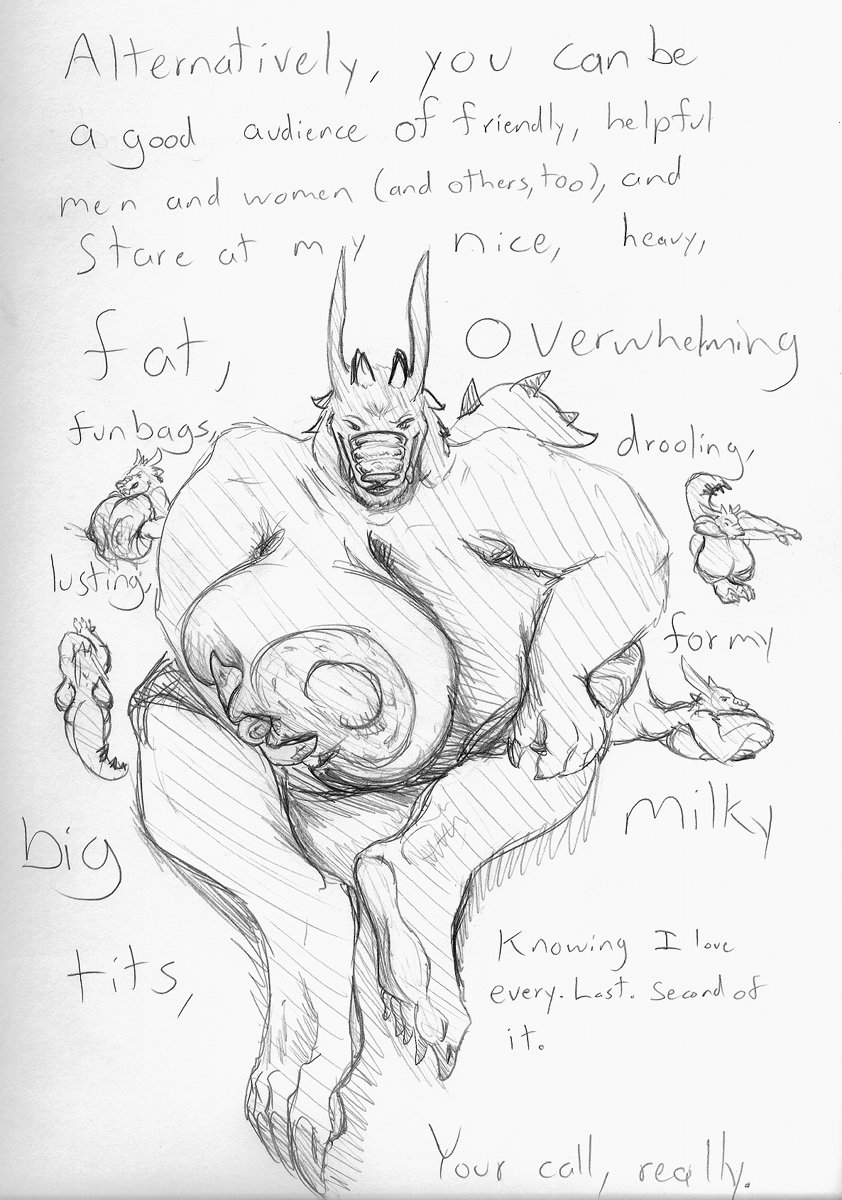 Alternatively, you can be
a good audience of friendly, helpful
men and women (and others, too), and
Stare at my nice, heavy,
fat, Overwhelming
funbags, drooling,
lusting, for my
big milky
tits,
Knowing I love
every. Last. Second of
it.
Your call, really.